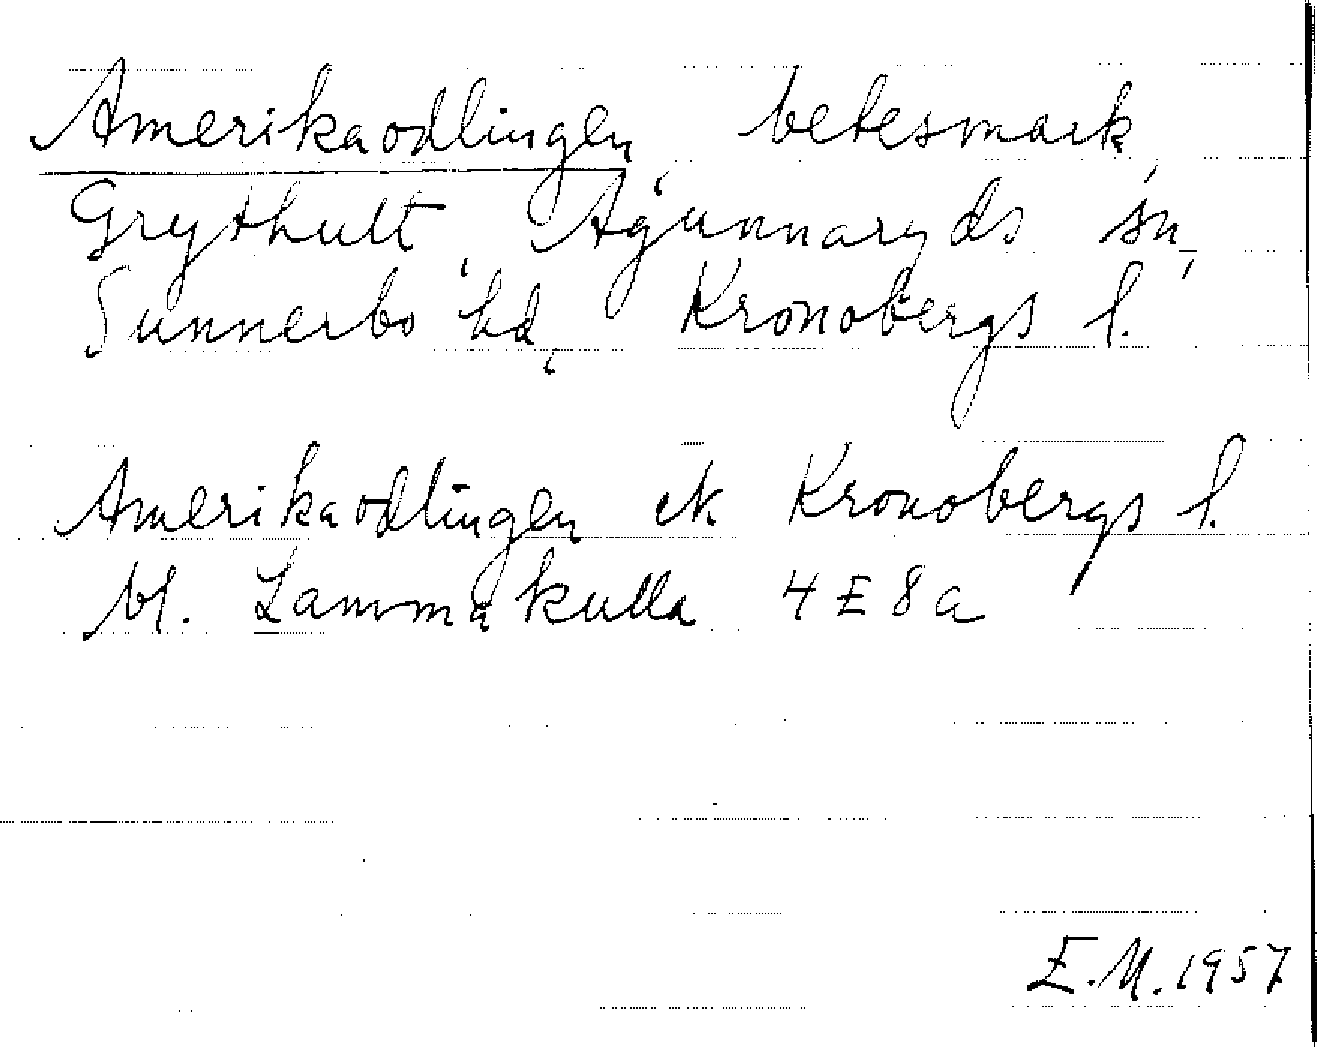 Amerikaodlingen, betesmark,
Grythult, Agunnaryds sn,
Sunnerbo hd, Kronobergs l.
Amerikaodlingen ek Kronobergs l.
bl. Lammakulla 4 E 8 a
E.M. 1957